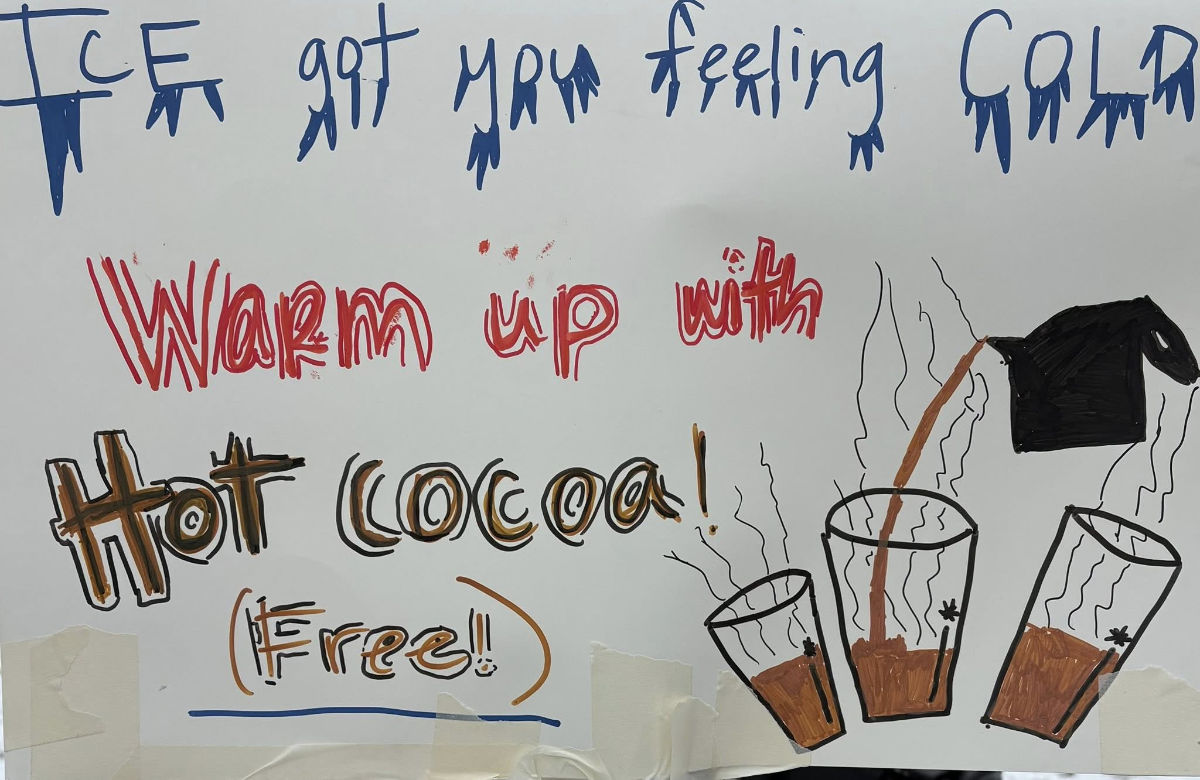 ICE got you feeling COLD
Warm up with
Hot cocoa!
(Free!!)